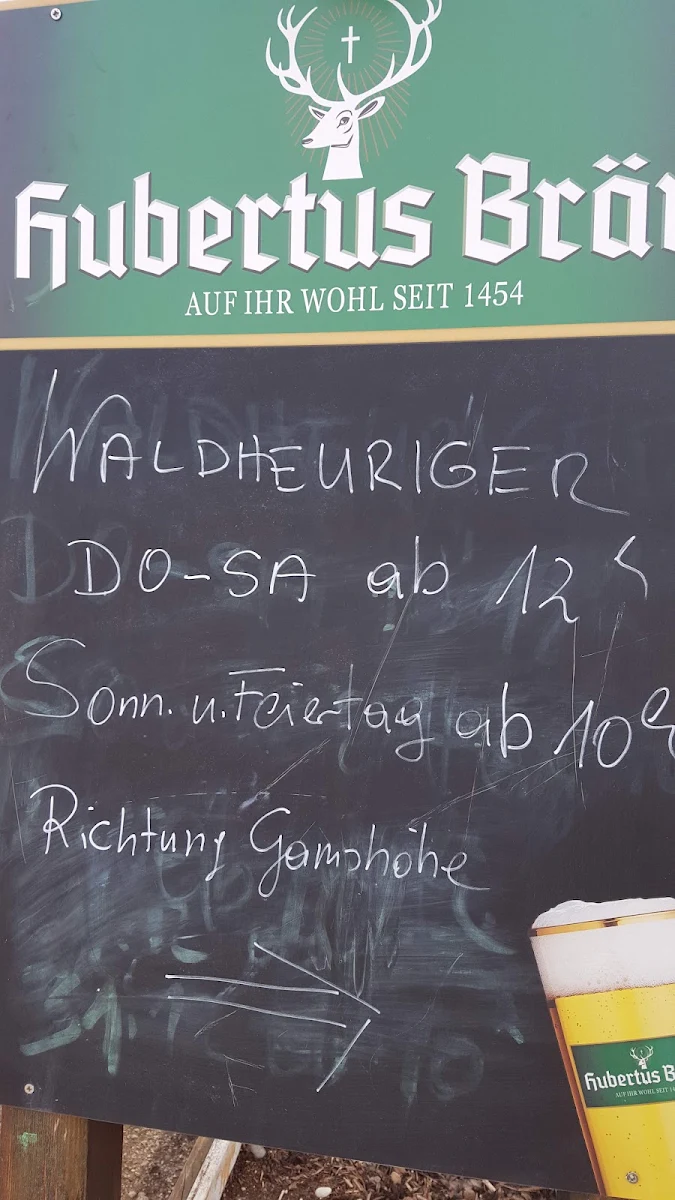 Hubertus Bräu
AUF IHR WOHL SEIT 1454
WALDHEURIGER
DO-SA ab 12h
Sonn. u. Feiertag ab 10h
Richtung Gamshöhe
Hubertus B
AUF IHR WOHL SEIT 14